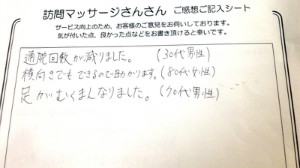 訪問マッサージさんさん ご感想ご記入シート
サービス向上のため、お客様のご意見をお伺いしております。
気が付いた点、良かった点などをお書き頂けると幸いです。
通院回数が減りました。（30代男性）
横向きでもできるので助かります。（80代女性）
足がむくまなくなりました。（70代男性）